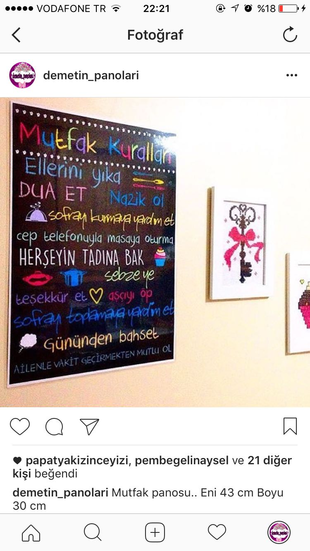 VODAFONE TR 22:21 %18
Fotoğraf
demetin_panolari
Mutfak Kuralları
Ellerini yıka
DUA ET Nazik ol
sofrayı kurmaya yardım et
cep telefonuyla masaya oturma
HERŞEYİN TADINA BAK
sebzeye
teşekkür et aşçıyı öp
sofrayı toplamaya yardım et
Gününden bahset
AİLENLE VAKİT GEÇİRMEKTEN MUTLU OL
papatyakizinceyizi, pembegelinaysel ve 21 diğer
kişi beğendi
demetin_panolari Mutfak panosu.. Eni 43 cm Boyu
30 cm